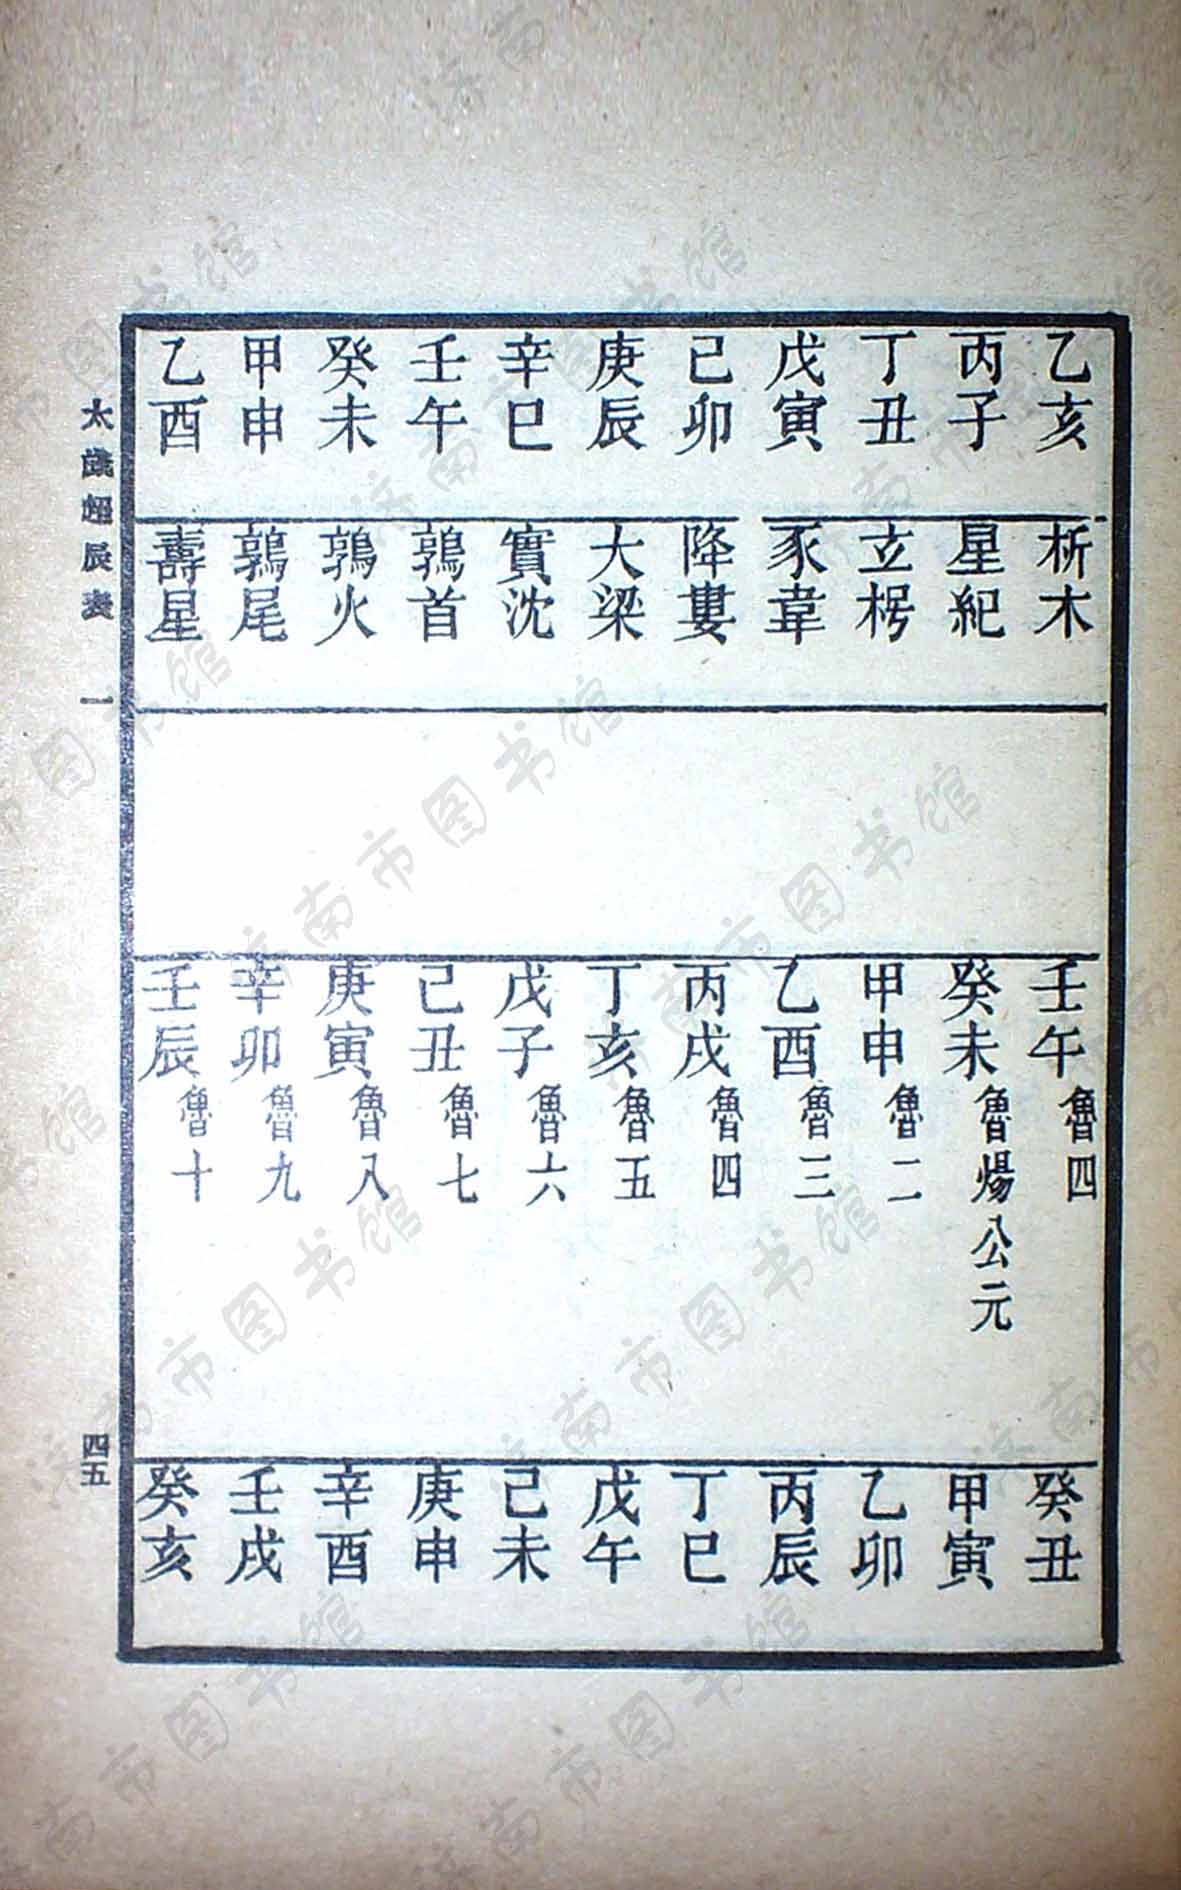 乙亥 析木 壬午魯四 癸丑
丙子 星紀 癸未魯煬公元 甲寅
丁丑 玄枵 甲申魯二 乙卯
戊寅 豕韋 乙酉魯三 丙辰
己卯 降婁 丙戌魯四 丁巳
庚辰 大梁 丁亥魯五 戊午
辛巳 實沈 戊子魯六 己未
壬午 鶉首 己丑魯七 庚申
癸未 鶉火 庚寅魯八 辛酉
甲申 鶉尾 辛卯魯九 壬戌
乙酉 壽星 壬辰魯十 癸亥
太歲超辰表 一 四五
济南市图书馆